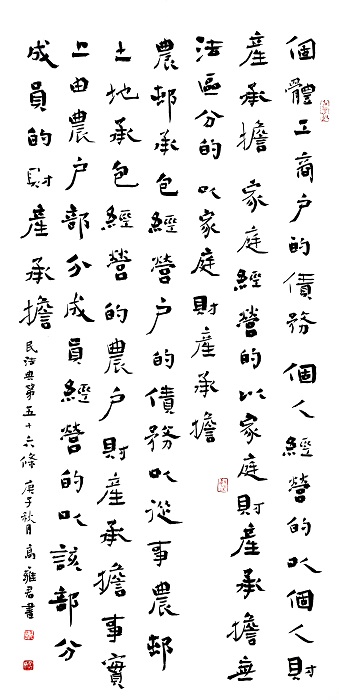 個體工商户的債務個人經營的以個人財
產承擔家庭經營的以家庭財產承擔無
法區分的以家庭財產承擔
農邨承包經營户的債務以從事農邨
土地承包經營的農户財產承擔事實
上由農户部分成員經營的以該部分
成員的財產承擔
民法典第五十六條 庚子秋月高君書